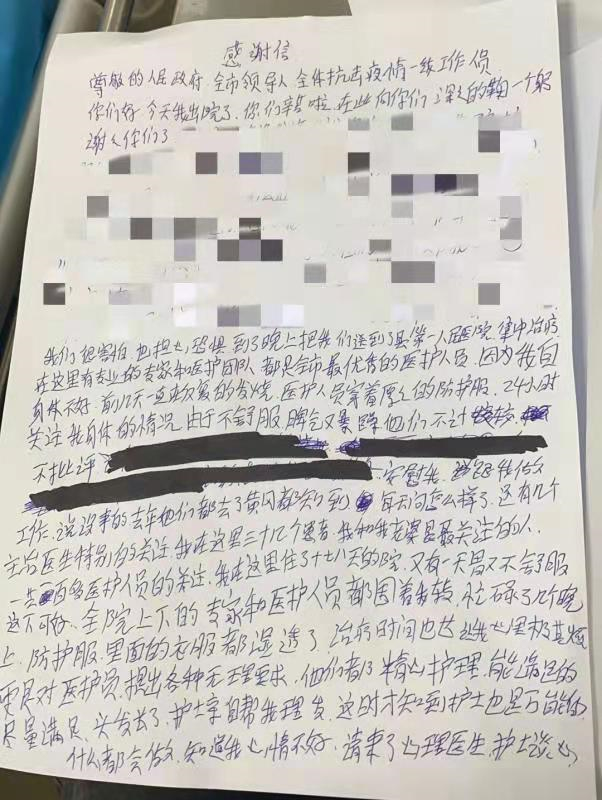 感谢信
尊敬的人民政府.全市领导人.全体抗击疫情一线工作员
你们好.今天我出院了.你们辛苦啦.在此向你们深々的鞠一个躬
谢々你们了
我们很害怕.也担心.恐惧.到了晚上把我们送到了县第一人民医院.集中治疗
在这里有专业的专家和医护团队人都是全市最优秀的医护人员.因为我自
自体不好.前几天一直反复的发烧.医护人员穿着厚々的防护服.24小时
关注我自体的情况.由于不舒服.脾气又暴躁.他们不计较
不批评
安慰我.给我做
工作.说没事的.去年他们都去了黄冈都 到 每天问怎么样了.还有几个
主治医生特别的关注.我在这里三十几个患者.我和我 是最关注的人.
一共百多医护人员的关注.我在这里住了十七八天的院.又有一天胃又不舒服
这下可好.全院上下的专家和医护人员都围着我转.忙碌了几个晚
上.防护服.里面的衣服都湿透了.治疗时间也长.我心里极其烦
更是对医护员.提出各种无理要求.他们都精心护理.能满足的
尽量满足.头发长了.护士亲自帮我理发.这时才知到护士也是万能的
什么都会做.知道我心情不好.请来了心理医生.护士谈心